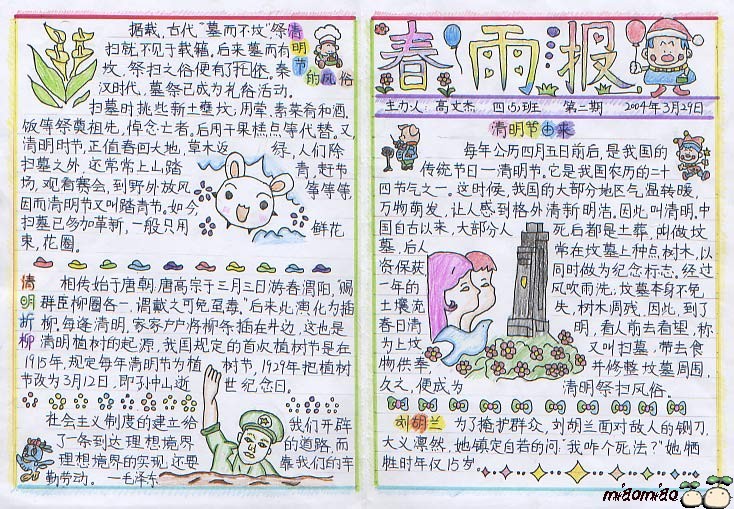 据载,古代“墓而不坟”,祭
扫就不见于载籍,后来墓而有
坟,祭扫之俗便有了托依,秦
汉时代,墓祭已成为礼俗活动。
清明节的风俗
扫墓时挑些新土壅坟;用荤、素菜肴和酒、
饭等祭奠祖先,悼念亡者。后用干果糕点等代替。又,
清明时节,正值春回大地,草木返绿,人们除
扫墓之外,还常常上山踏青,赶节
场,观看赛会,到野外放风筝等等,
因而清明节又叫踏青节。如今,
扫墓已多加革新,一般只用鲜花
束,花圈。
清明折柳
相传始于唐朝,唐高宗于三月三日游春渭阳,“赐
群臣柳圈各一,谓戴之可免虿毒。”后来此演化为插
柳,每逢清明,家家户户将柳条插在井边,这也是
清明植树的起源,我国规定的首次植树节是在
1915年,规定每年清明节为植树节,1929年把植树
节改为3月12日,即孙中山逝世纪念日。
社会主义制度的建立给我们开辟
了一条到达理想境界的道路,而
理想境界的实现,还要靠我们的辛
勤劳动。—毛泽东
春雨报
主办人:高文杰 四(5)班 第二期 2009年3月29日
清明节由来
每年公历四月五日前后,是我国的
传统节日—清明节。它是我国农历的二十
四节气之一。这时候,我国的大部分地区气温转暖,
万物萌发,让人感到格外清新明洁。因此叫清明。中
国自古以来,大部分人死后都是土葬,叫做坟
墓,后人常在坟墓上种点树木,以
资保获同时做为纪念标志。经过
一年的风吹雨洗,坟墓本身不免
土壤流失,树木凋残,因此,到了
春日清明,看人前去看望,称
为上坟又叫扫墓,带去食
物供奉,并修整坟墓周围,
久之,便成为清明祭扫风俗。
刘胡兰 为了掩护群众,刘胡兰面对敌人的铡刀,
大义凛然,她镇定自若的问:“我咋个死法?”她牺
牲时年仅15岁。
miaomiao